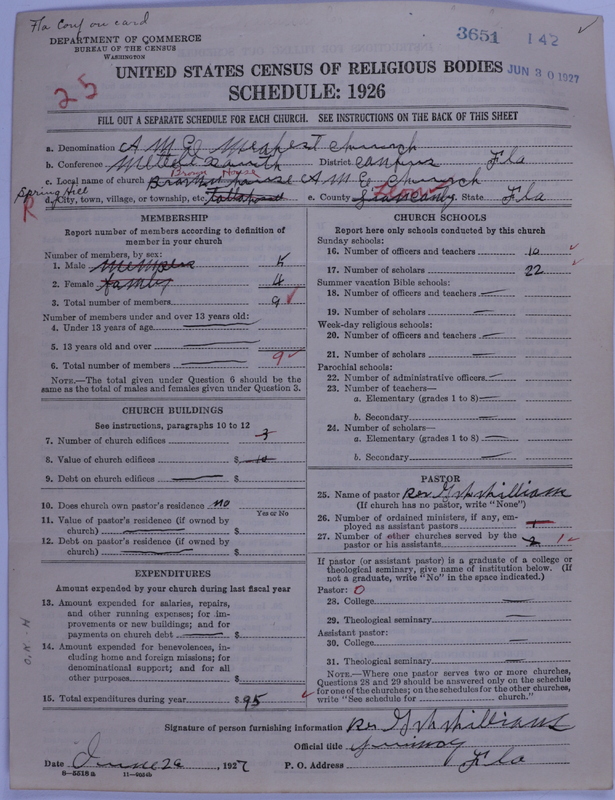 Fla Conf on card
DEPARTMENT OF COMMERCE
BUREAU OF THE CENSUS
WASHINGTON
3651 142
JUN 30 1927
25
UNITED STATES CENSUS OF RELIGIOUS BODIES
SCHEDULE: 1926
FILL OUT A SEPARATE SCHEDULE FOR EACH CHURCH. SEE INSTRUCTIONS ON THE BACK OF THIS SHEET
a. Denomination A. M. E. church
b. Conference District Fla
Brown House
c. Local name of church house A M E Church
Spring Hill
R
d. City, town, village, or township, etc. e. County Leon State Fla
MEMBERSHIP
Report number of members according to definition of member in your church
Number of members, by sex:
1. Male 5
2. Female 4
3. Total number of members 9 ✓
Number of members under and over 13 years old:
4. Under 13 years of age
5. 13 years old and over
6. Total number of members 9 ✓
NOTE.—The total given under Question 6 should be the same as the total of males and females given under Question 3.
CHURCH BUILDINGS
See instructions, paragraphs 10 to 12
7. Number of church edifices
8. Value of church edifices $
9. Debt on church edifices $
10. Does church own pastor's residence no
Yes or No
11. Value of pastor's residence (if owned by church) $
12. Debt on pastor's residence (if owned by church) $
EXPENDITURES
Amount expended by your church during last fiscal year
13. Amount expended for salaries, repairs, and other running expenses; for improvements or new buildings; and for payments on church debt $
14. Amount expended for benevolences, including home and foreign missions; for denominational support; and for all other purposes $
15. Total expenditures during year $ 95
O.K. - H
CHURCH SCHOOLS
Report here only schools conducted by this church
Sunday schools:
16. Number of officers and teachers 10 ✓
17. Number of scholars 22 ✓
Summer vacation Bible schools:
18. Number of officers and teachers
19. Number of scholars
Week-day religious schools:
20. Number of officers and teachers
21. Number of scholars
Parochial schools:
22. Number of administrative officers
23. Number of teachers—
a. Elementary (grades 1 to 8)
b. Secondary
24. Number of scholars—
a. Elementary (grades 1 to 8)
b. Secondary
PASTOR
25. Name of pastor Rev
(If church has no pastor, write "None")
26. Number of ordained ministers, if any, employed as assistant pastors
27. Number of other churches served by the pastor or his assistants 1 ✓
If pastor (or assistant pastor) is a graduate of a college or theological seminary, give name of institution below. (If not a graduate, write "No" in the space indicated.)
Pastor: 0
28. College
29. Theological seminary
Assistant pastor:
30. College
31. Theological seminary
NOTE.—Where one pastor serves two or more churches, Questions 28 and 29 should be answered only on the schedule for one of the churches; on the schedules for the other churches, write "See schedule for church."
Signature of person furnishing information Rev Williams
Official title
Date June 29, 1927 P. O. Address Quincy Fla
8—5518a 11—9034b